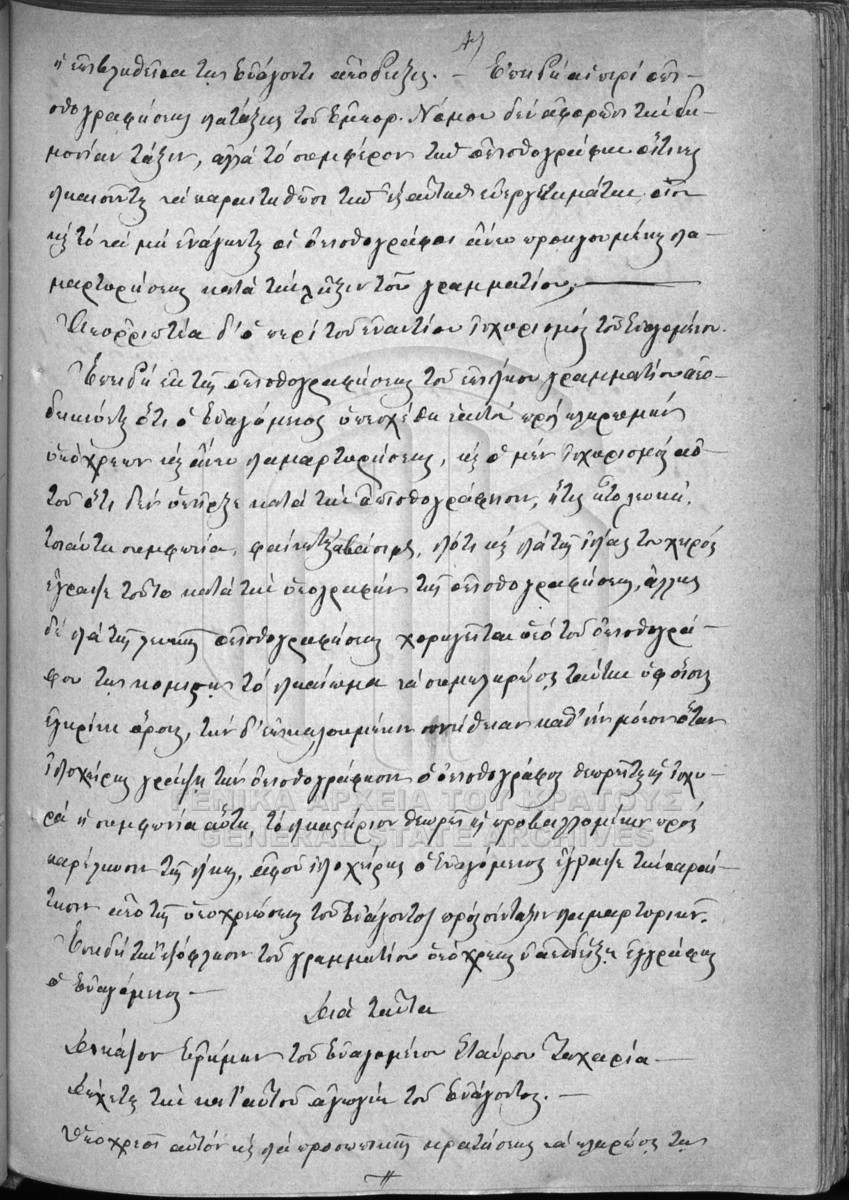 ἡ ἐπιβληθεῖσα τῷ ἐνάγοντι ἀπόδειξις. — Ἐπειδὴ αἱ περὶ ὀπι-
σθογραφήσεως διατάξεις τοῦ Ἐμπορ. Νόμου δὲν ἀφορῶσι τὴν δη-
μοσίαν τάξιν, ἀλλὰ τὸ συμφέρον τῶν ὀπισθογράφων οἵτινες
δικαιοῦνται νὰ παραιτηθῶσι τῶν ἐξ αὐτῶν εὐεργετημάτων, οἷον
κ τὸ νὰ μὴ ἐνάγωνται οἱ ὀπισθογράφοι ἄνευ προηγουμένης δια-
μαρτυρήσεως κατὰ τὴν λῆξιν τοῦ γραμματίου,
Ἀπορριπτέα δ' ὁ περὶ τοῦ ἐναντίου ἰσχυρισμὸς τοῦ ἐναγομένου.
Ἐπειδὴ ἐκ τῆς ὀπισθογραφήσεως τοῦ ἐπιδίκου γραμματίου ἀπο-
δεικνύεται ὅτι ὁ ἐναγόμενος ὑπεσχέθη ἑαυτὸν πρὸς πληρωμὴν
ὑπόχρεων κ ἄνευ διαμαρτυρήσεως, κ ὁ μὲν ἰσχυρισμός αὐ-
τοῦ ὅτι δὲν ὑπῆρξε κατὰ τὴν ὀπισθογράφησιν,
τοιαύτη συμφωνία, φαίνεται ἀβάσιμος, διότι κ διὰ τῆς ἰδίας του χειρὸς
ἔγραψε τοῦτο κατὰ τὴν ὑπογραφὴν τῆς ὀπισθογραφήσεως, ἄλλως
δὲ διὰ τῆς λευκῆς ὀπισθογραφήσεως χορηγεῖται ὑπὸ τοῦ ὀπισθογρά-
φου τῷ κομιστῇ τὸ δικαίωμα νὰ συμπληρώσῃ ταύτην ὑφ' οἵους
ἐγκρίνει ὅρους, τὴν δ' ἐπικαλουμένην συνήθειαν καθ' ἣν μόνον ὅταν
ἰδιοχείρως γράψῃ τὴν ὀπισθογράφησιν ὁ ὀπισθογράφος θεωρεῖται ἰσχυ-
ρὰ ἡ συμφωνία αὕτη, τὸ δικαστήριον θεωρεῖ ὡς προβαλλομένην πρὸς
παρέλκυσιν τῆς δίκης, ἀφοῦ ἰδιοχείρως ὁ ἐναγόμενος ἔγραψε τὴν παραί-
τησιν ἀπὸ τῆς ὑποχρεώσεως τοῦ ἐνάγοντος πρὸς σύνταξιν διαμαρτυρικοῦ.
Ἐπειδὴ τὴν ἐξόφλησιν τοῦ γραμματίου ὑπόχρεως ν' ἀποδείξῃ ἐγγράφως
ὁ ἐναγόμενος —
Διὰ ταῦτα
Δικάζον ἐρήμην τοῦ ἐναγομένου Σταύρου Ζαχαρία —
Δέχεται τὴν κατ' αὐτοῦ ἀγωγὴν τοῦ ἐνάγοντος. —
Ὑποχρεοῖ αὐτὸν κ διὰ προσωπικῆς κρατήσεως νὰ πληρώσῃ τῷ
ΓΕΝΙΚΑ ΑΡΧΕΙΑ ΤΟΥ ΚΡΑΤΟΥΣ
GENERAL STATE ARCHIVES